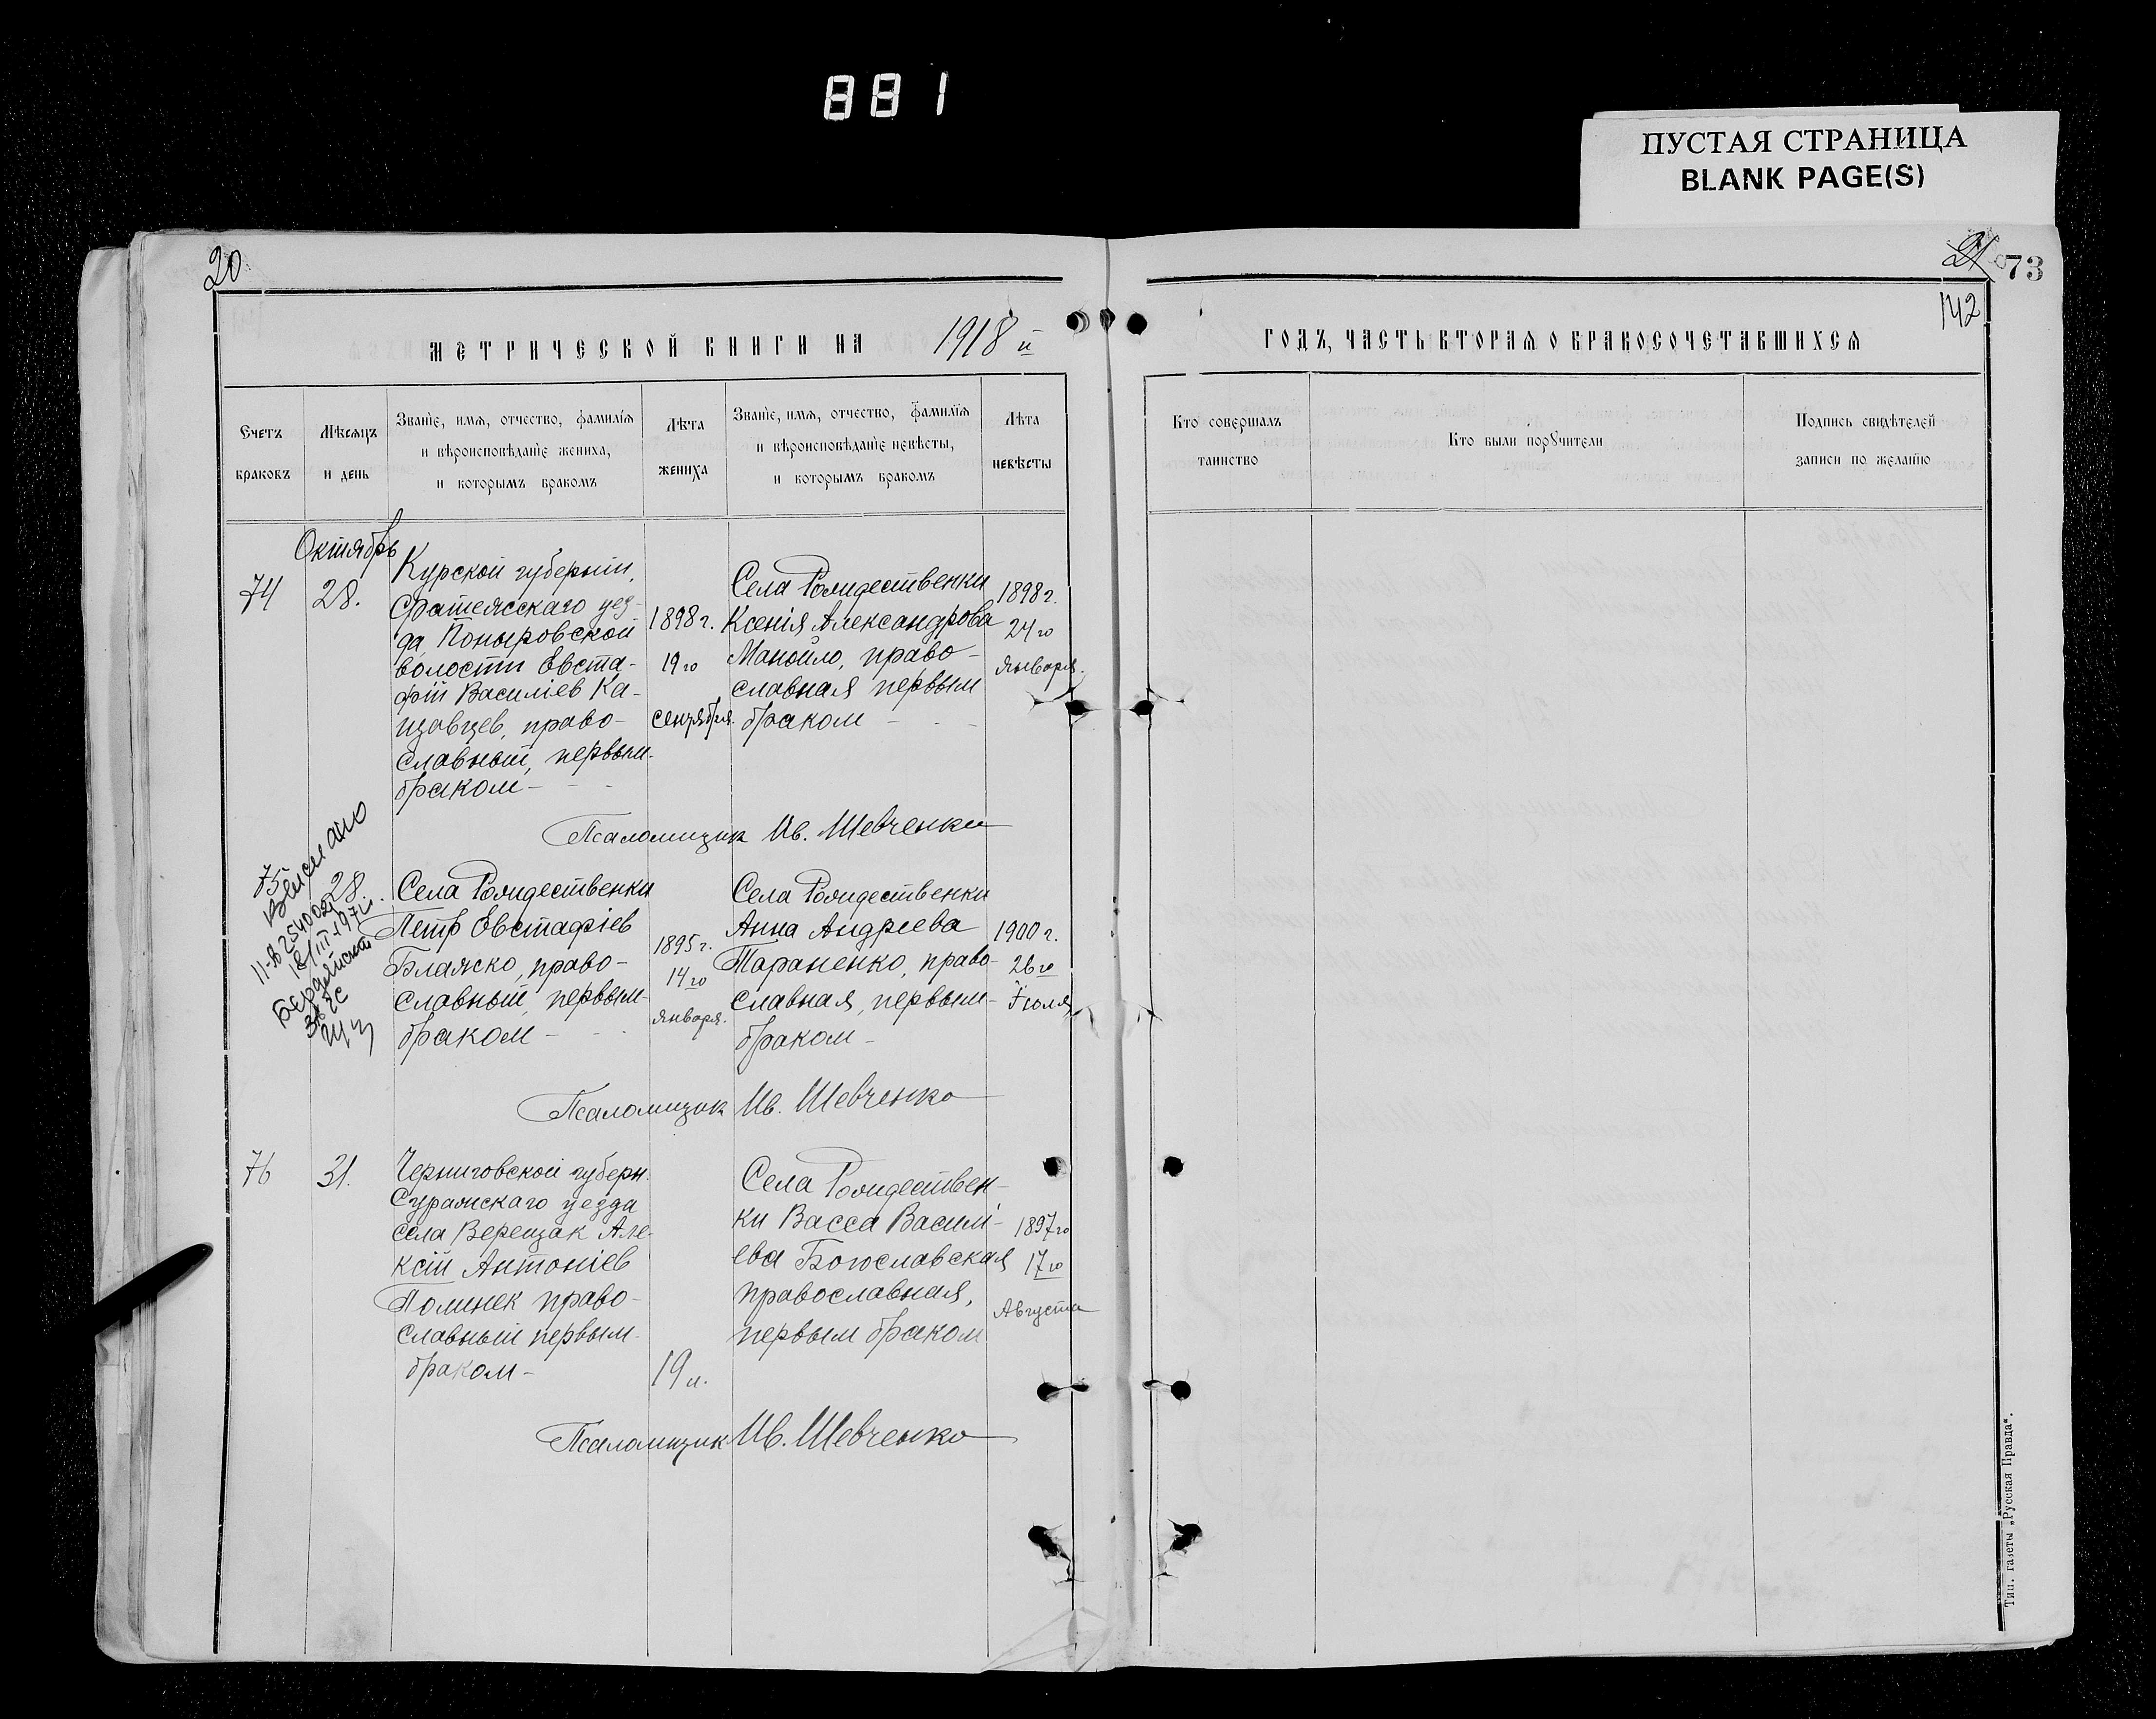 881
ПУСТАЯ СТРАНИЦА
BLANK PAGE(S)
20
21
73
142
МЕТРИЧЕСКОЙ КНИГИ НА 1918 й
ГОДЪ, ЧАСТЬ ВТОРАЯ О БРАКОСОЧЕТАВШИХСЯ
Счетъ
браковъ
Мѣсяцъ
и день
Званіе, имя, отчество, фамилія
и вѣроисповѣданіе жениха,
и которымъ бракомъ
Лѣта
жениха
Званіе, имя, отчество, фамилія
и вѣроисповѣданіе невѣсты,
и которымъ бракомъ
Лѣта
невѣсты
Кто совершалъ
таинство
Кто были поручители
Подпись свидѣтелей
записи по желанію
Октябрь
74
28.
Курской губерніи,
Фатежсскаго уез-
да, Поныровской
волости Евста-
фій Василіев Ка-
щавцев, право-
славный, первым
браком-
1898 г.
19 го
сентября.
Села Рождественки
Ксенія Александрова
Манойло, право-
славная первым
браком
1898 г.
24 го
января.
Псаломщик Ив. Шевченко
75
28.
Выслано
11-Я 254002
III-1971
Бердянский
Села Рождественки
Петр Евстафіев
Бляжско, право-
славный, первым
браком-
1895 г.
14 го
января.
Села Рождественки
Анна Андреева
Тараненко, право-
славная, первым-
браком-
1900 г.
26 го
Іюля
Псаломщик Ив. Шевченко
76
31.
Черниговской губерн.
Суражскаго уезда
села Верещак Але-
ксій Антоніев
Полинек право-
славный первым
браком-
19 л.
Села Рождествен-
ки Васса Василі-
ева Богославская
православная,
первым браком
1897 го
17 го
Августа
Псаломщик Ив. Шевченко
Тип. газеты „Русская Правда“.